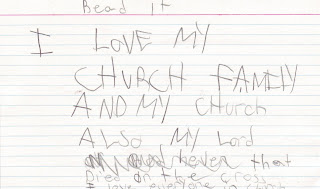 Read it
I LOVE MY
CHURCH FAMILY
AND MY church
ALSO MY Lord
that
Died on the cross
I love everyone in church